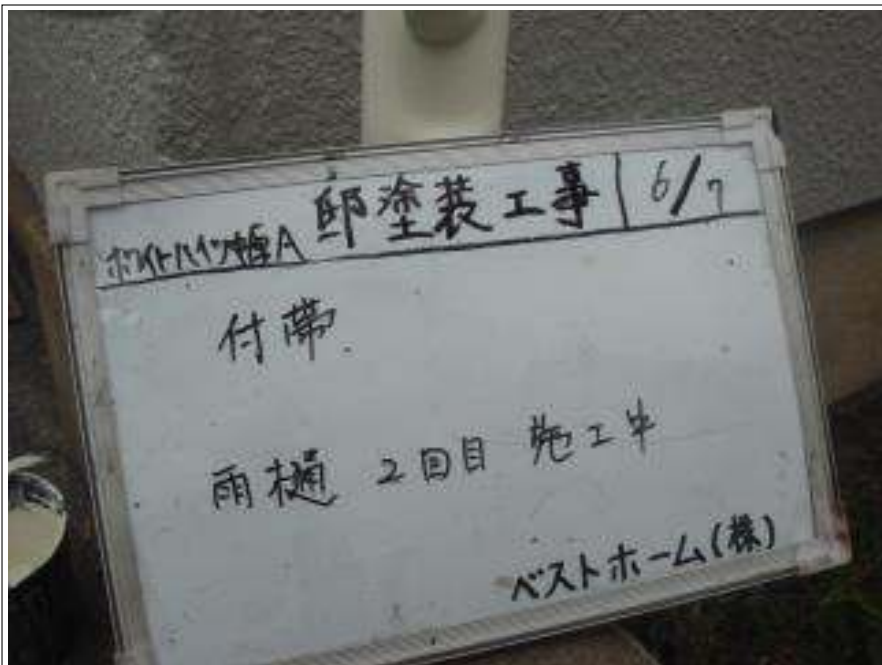 ホワイトハイツ A 邸塗装工事 6/7
付帯
雨樋 2回目 施工中
ベストホーム(株)